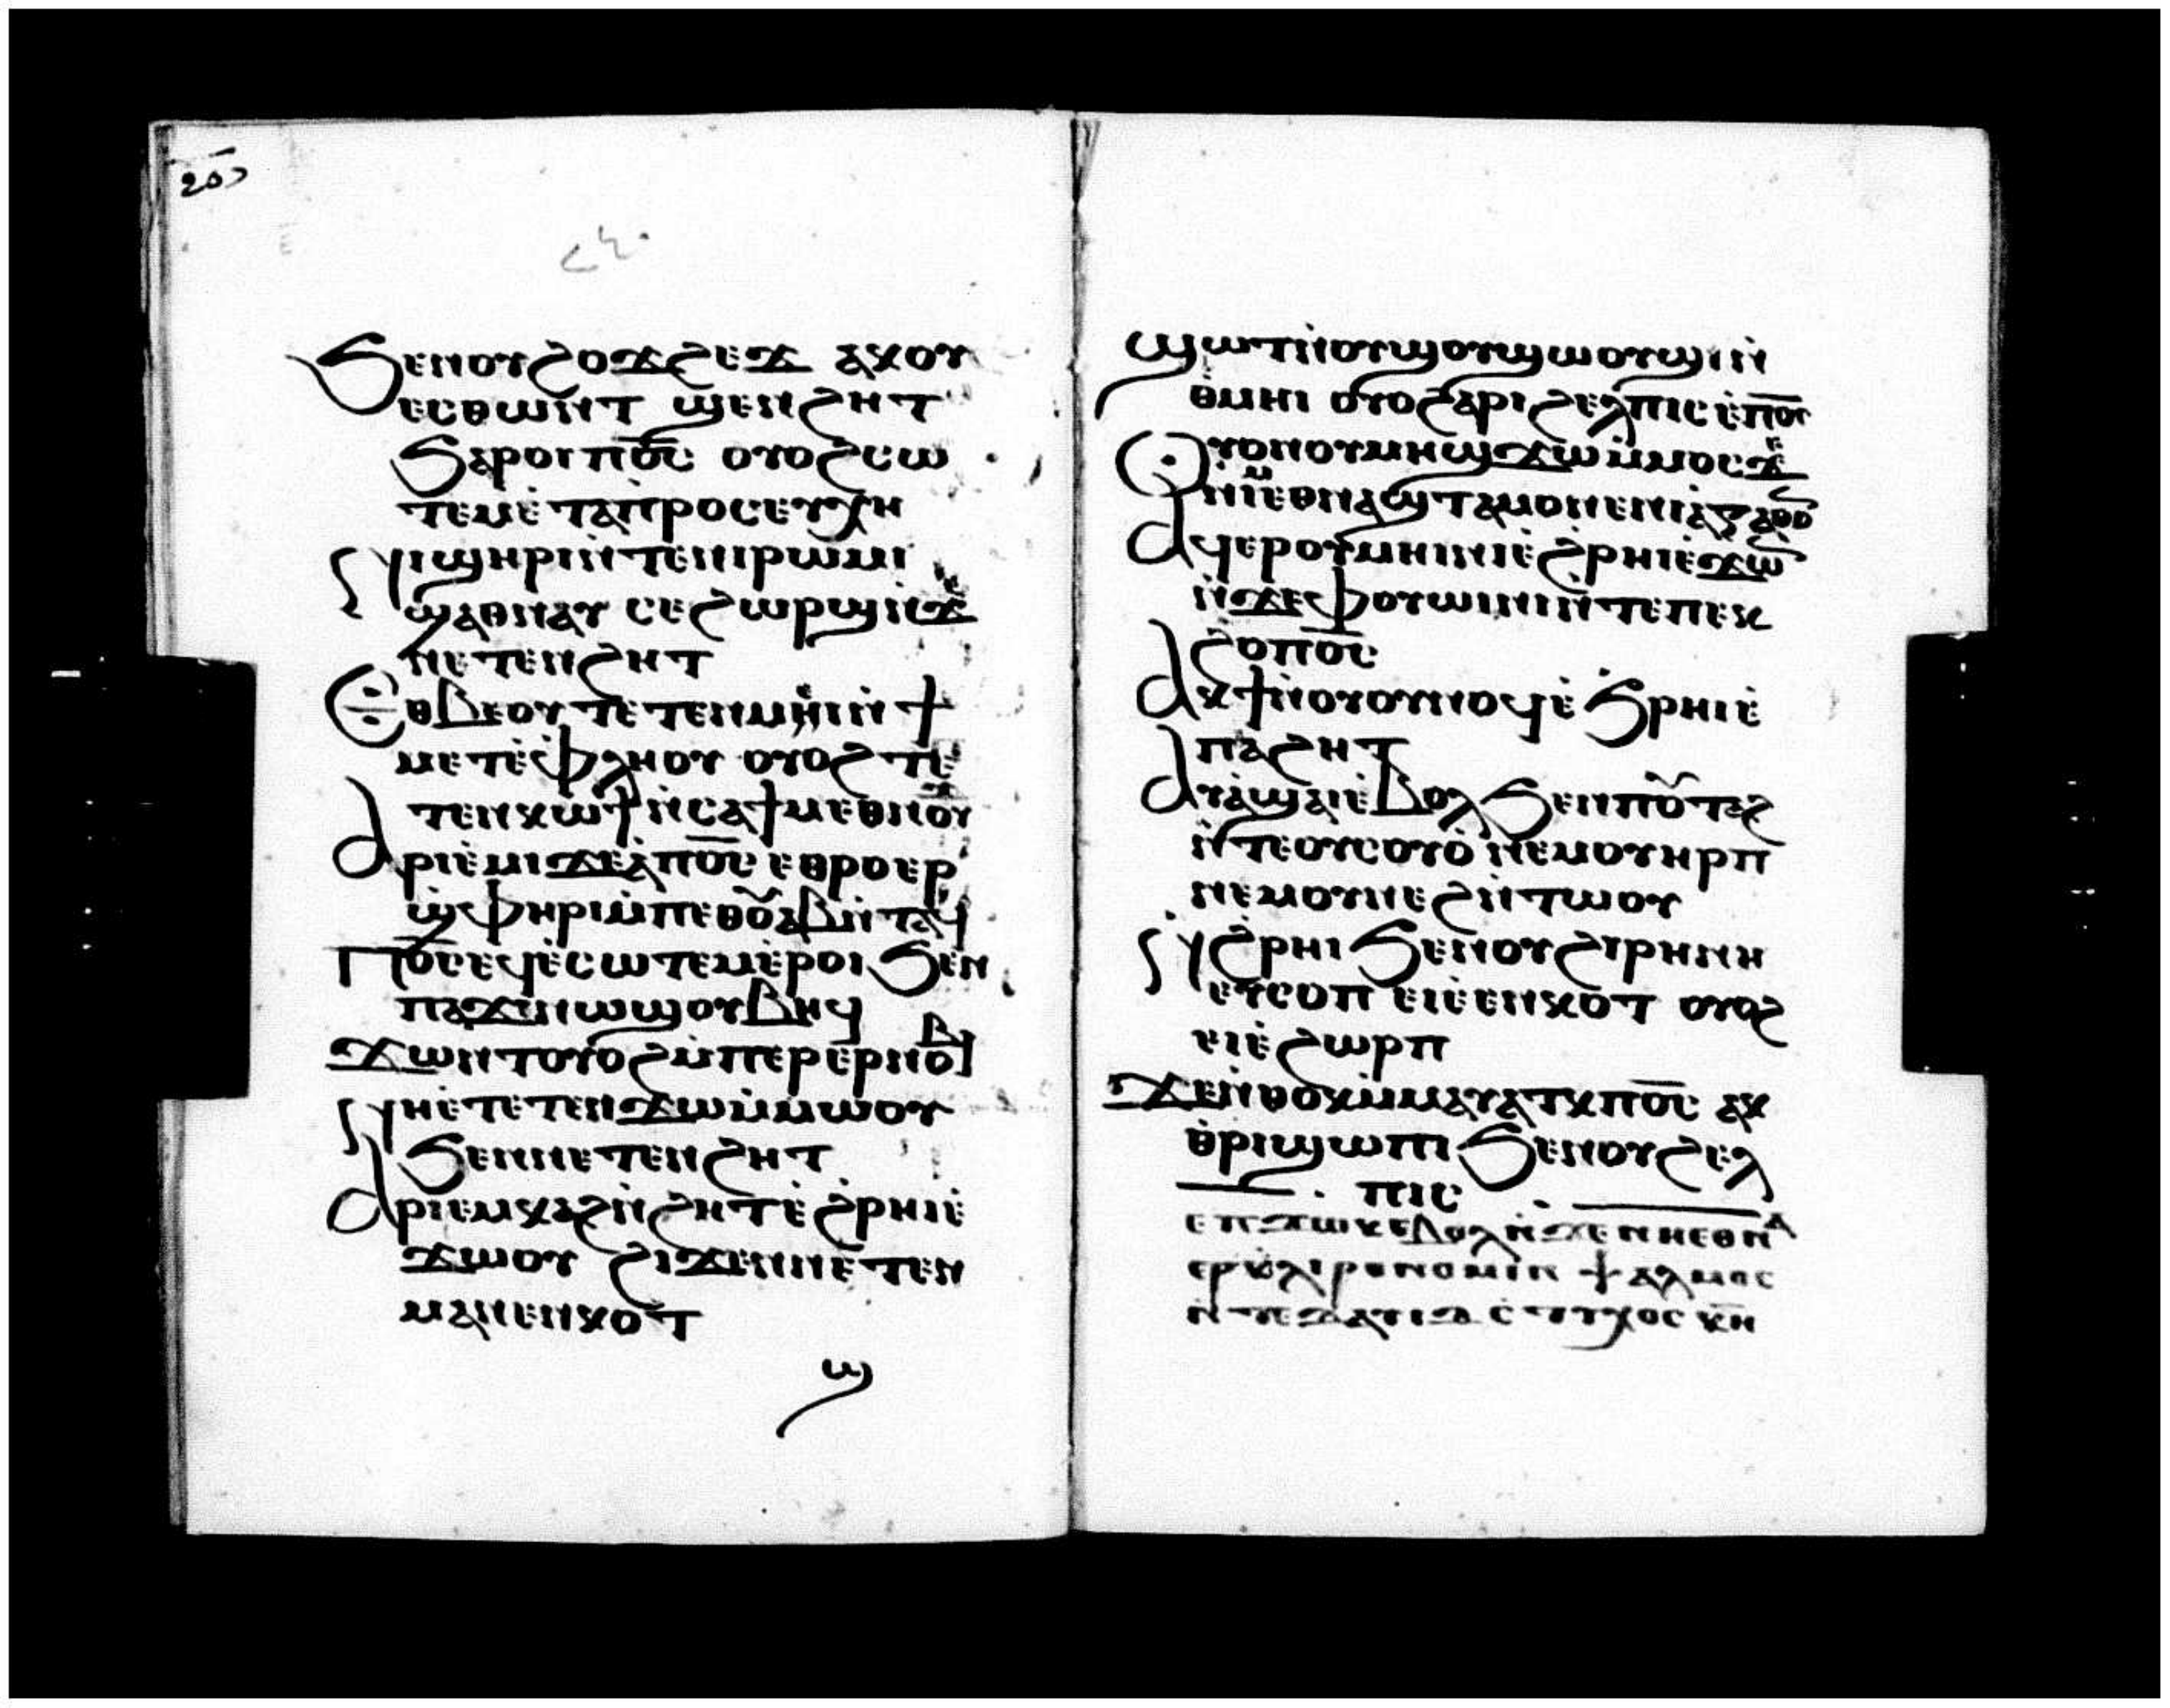 ϧⲉⲛⲟⲩϩⲟϫϩⲉϫ ⲁⲕⲟⲩ
ⲉⲥⲑⲱⲛⲧ ϣⲉⲛϩⲏⲧ
ϧⲁⲣⲟⲓ ⲡⲟ̅ⲥ̅ ⲟⲩⲟϩ ⲥⲱ
ⲧⲉⲙ ⲉ̀ⲧⲁⲡ̀ⲣⲟⲥⲉⲩⲭⲏ
ⲛⲓϣⲏⲣⲓ ⲛ̀ⲧⲉⲛⲓⲣⲱⲙⲓ
ϣⲁⲑⲛⲁⲩ ⲥⲉϩⲱⲣϣ ⲛ̀ϫⲉ
ⲛⲉⲧⲉⲛϩⲏⲧ
ⲉⲑⲃⲉⲟⲩ ⲧⲉⲧⲉⲛⲙⲏⲓ ⲛ̀ϯ
ⲙⲉⲧⲉ̀ⲫⲗⲏⲟⲩ ⲟⲩⲟϩ ⲧⲉ
ⲧⲉⲛⲕⲱϯ ⲛ̀ⲥⲁϯⲙⲉⲑⲛⲟⲩϫ
ⲁⲣⲓⲉ̀ⲙⲓ ϫⲉ ⲁ̀ⲡⲟ̅ⲥ̅ ⲉⲑⲣⲟⲉⲣ
ϣ̀ⲫⲏⲣⲓ ⲙ̀ⲡⲉⲑⲟ̅ⲩⲁⲃ ⲛ̀ⲧⲁϥ
ⲡⲟ̅ⲥ̅ ⲉϥⲉ̀ⲥⲱⲧⲉⲙ ⲉ̀ⲣⲟⲓ ϧⲉⲛ
ⲡⲁϫⲓⲛⲱϣ ⲟⲩⲃⲏϥ
ϫⲱⲛⲧ ⲟⲩⲟϩ ⲙ̀ⲡⲉⲣⲉⲣⲛⲟⲃⲓ
ⲛⲏ ⲉ̀ⲧⲉⲧⲉⲛϫⲱ ⲙ̀ⲙⲱⲟⲩ
ϧⲉⲛⲛⲉⲧⲉⲛϩⲏⲧ
ⲁⲣⲓⲉⲙⲕⲁϩ ⲛ̀ϩⲏⲧ ⲉ̀ϩ̀ⲣⲏⲓ ⲉ̀
ϫⲱⲟⲩ ϩⲓϫⲉⲛ ⲛⲉⲧⲉⲛ
ⲙⲁⲛⲉⲛⲕⲟⲧ
ϣ
ϣⲱⲧ ⲛ̀ⲟⲩϣⲟⲩϣⲱⲟⲩϣⲓ ⲛ̀
ⲑ̀ⲙⲏⲓ ⲟⲩⲟϩ ⲁⲣⲓϩⲉⲗⲡⲓⲥ ⲉ̀ⲡⲟ̅ⲥ̅
ⲟⲩⲟⲛⲟⲩⲙⲏϣ ϫⲱ ⲙ̀ⲙⲟⲥ ϫⲉ
ⲛⲓⲙ ⲉⲑⲛⲁϣⲧⲁⲙⲟⲛ ⲉⲛⲓⲁ̀ⲅⲁⲑⲟⲛ
ⲁϥⲉⲣⲟⲩⲙⲏⲓⲛⲓ ⲉ̀ϩ̀ⲣⲏⲓ ⲉ̀ϫⲱⲛ
ⲛ̀ϫⲉⲫⲟⲩⲱⲓⲛⲓ ⲛ̀ⲧⲉⲡⲉⲕ
ϩⲟ ⲡⲟ̅ⲥ̅
ⲁⲕϯ ⲛ̀ⲟⲩⲟⲩⲛⲟϥ ⲉ̀ϧ̀ⲣⲏⲓ ⲉ̀
ⲡⲁϩⲏⲧ
ⲁⲩⲁ̀ϣⲁⲓ ⲉ̀ⲃⲟⲗ ϧⲉⲛⲡⲟⲩⲧⲁϩ
ⲛ̀ⲧⲉⲟⲩⲥⲟⲩⲟ̀ ⲛⲉⲙⲟⲩⲏⲣⲡ
ⲛⲉⲙⲟⲩⲛⲉϩ ⲛ̀ⲧⲱⲟⲩ
ⲛ̀ϩ̀ⲣⲏⲓ ϧⲉⲛⲟⲩϩⲓⲣⲏⲛⲏ
ⲉⲩⲥⲟⲡ ⲉⲓⲉ̀ⲉⲛⲕⲟⲧ ⲟⲩⲟϩ
ⲉⲓⲉ̀ϩⲱⲣⲡ
ϫⲉ ⲛ̀ⲑⲟⲕ ⲙ̀ⲙⲁⲩⲁⲧⲕ ⲡⲟ̅ⲥ̅ ⲁⲕ
ⲑ̀ⲣⲓϣⲱⲡⲓ ϧⲉⲛⲟⲩϩⲉⲗ
ⲡⲓⲥ
ⲉⲡϫⲱⲕ ⲉⲃⲟⲗ ⲛ̀ϫⲉ ⲛⲏⲉⲑⲛⲁ
ⲉⲣⲕ̀ⲗⲓⲣⲟⲛⲟⲙⲓⲛ ⲯⲁⲗⲙⲟⲥ
ⲛ̀ⲧⲉⲇⲁⲩⲓⲇ ⲥ̀ⲧⲩⲭⲟⲥ ⲕⲏ̅